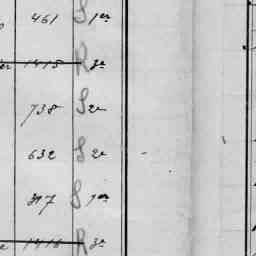 461 S 1er
1415 R 3e
738 S 2e
632 S 2e
317 S 1er
1416 R 3e